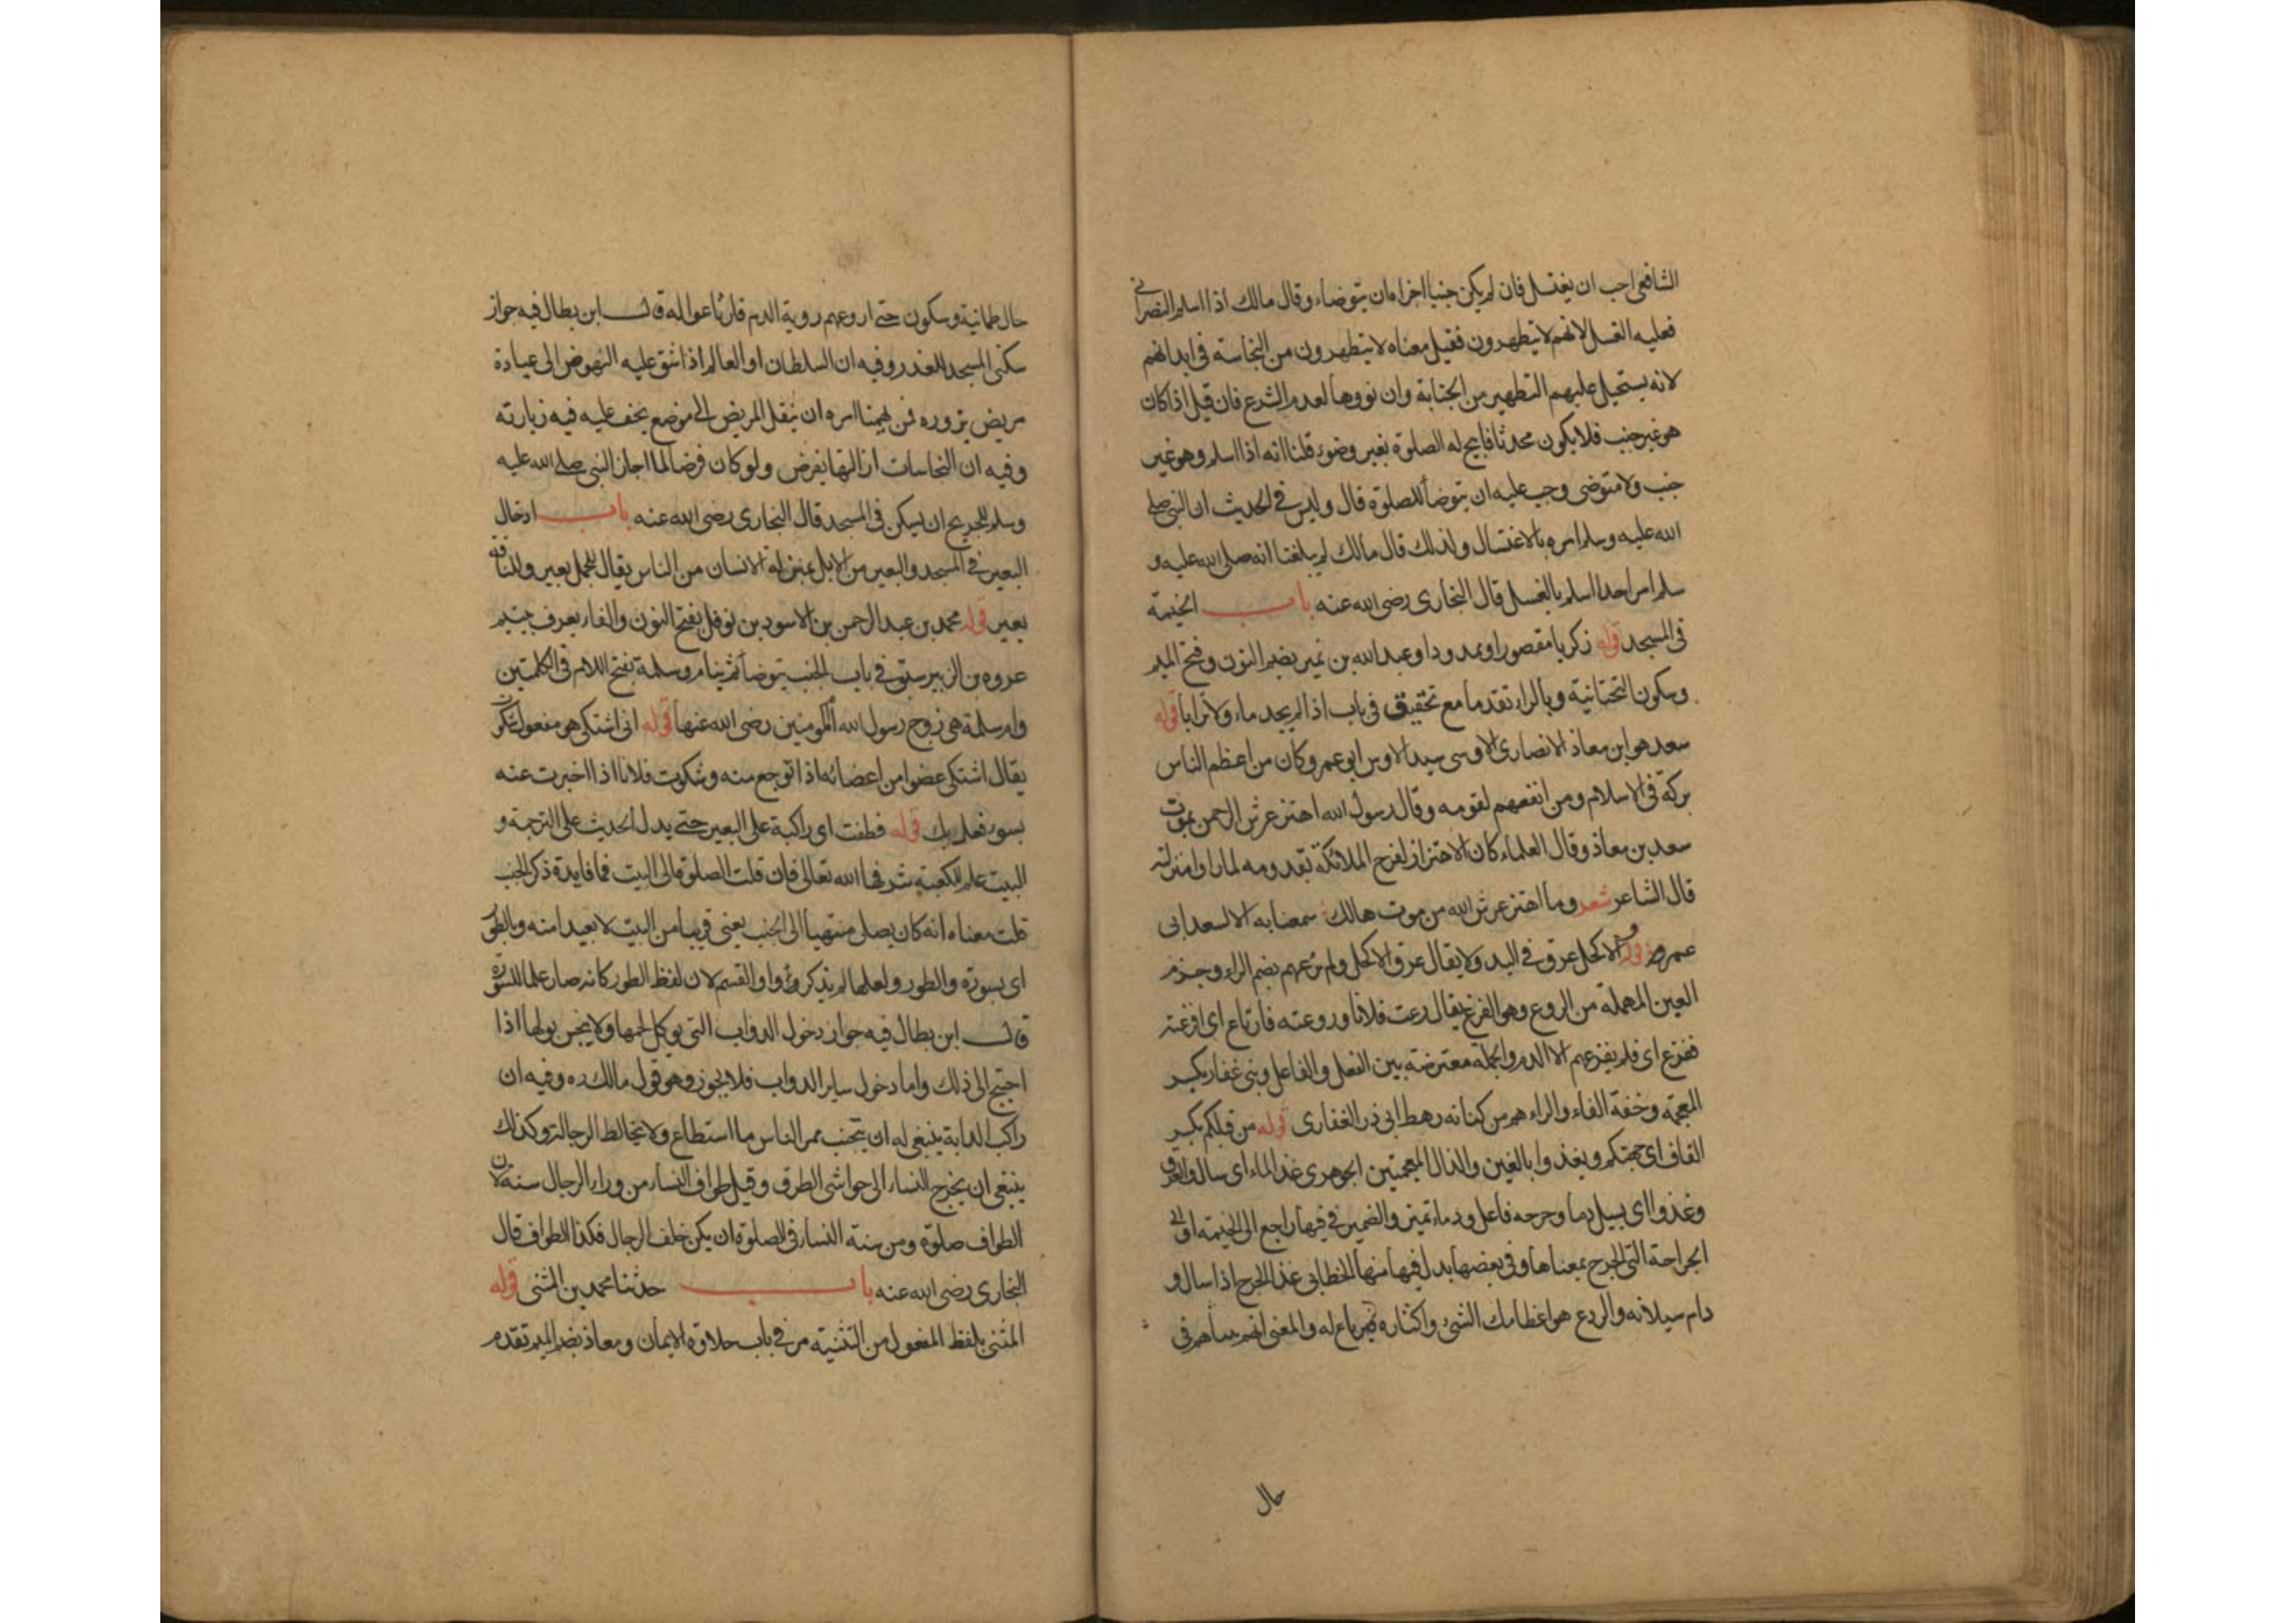 الشافعى احب ان يغتسل فان لم يكن جنبا اجزاه ان يتوضاء وقال مالك اذا اسلم النصرانى
فعليه الغسل لانهم لا يتطهرون فقيل معناه لا يتطهرون من النجاسة فى ابدانهم
لانه يستحيل عليهم التطهير من الجنابة وان نووها لعدم الشرع فان قيل اذا كان
هو غير جنب فلا يكون محدثا فابيح له الصلوة بغير وضوء قلنا انه اذا اسلم وهو غير
جنب ولا متوضى وجب عليه ان يتوضأ للصلوة قال وليس فى الحديث ان النبى صلى
الله عليه وسلم امره بالاغتسال ولذلك قال مالك لم يبلغنا انه صلى الله عليه و
سلم امر احدا اسلم بالغسل قال البخارى رضى الله عنه باب الخيمة
فى المسجد قوله زكريا مقصورا وممدودا وعبد الله بن نمير بضم النون وفتح الميم
وسكون التحتانية وبالراء تقدما مع تحقيق فى باب اذا لم يجد ماء ولا ترابا قوله
سعد هو ابن معاذ الانصارى الاوسى سيد الاوس ابو عمرو كان من اعظم الناس
بركة فى الاسلام ومن انفعهم لقومه وقال رسول الله اهتز عرش الرحمن بموت
سعد بن معاذ وقال العلماء كان الاهتزاز لفرح الملائكة بقدومه لما راوا منزلته
قال الشاعر شعر وما اهتز عرش الله من موت هالك سمعنا به الا لسعد ابى
عمرو قوله الاكحل عرق فى اليد ولا يقال عرق الاكحل ولم يرعهم بضم الراء وجزم
العين المهملة من الروع وهو الفزع يقال رعت فلانا وروعته فارتاع اى افزعته
ففزع اى فلم يفزعهم الا الدم والجملة معترضة بين الفعل والفاعل وبنى غفار بكسر
المعجمة وخفة الفاء والراء هم من كنانه رهط ابى ذر الغفارى قوله من قبلكم بكسر
القاف اى جهتكم ويغذوا بالغين والذال المعجمتين الجوهرى غذا الماء اى سال والعرق
وغذوا اى يسيل دما وجرحه فاعل ودماء تميز والضمير فى فيها راجع الى الخيمة او الى
الجراحة التى الجرح بمعناها وفى بعضها بدل فيها منها الخطابى غذا الجرح اذا سال و
دام سيلانه والردع هو اعظامك الشئ واكثاره له والمعنى انهم بيناهم فى
حال
حال طمانية وسكون حتى اروعهم روية الدم فارتاعوا له قال ابن بطال فيه جواز
سكنى المسجد للعذر وفيه ان السلطان او العالم اذا شق عليه النهوض الى عيادة
مريض يزوره ان ينقل المريض الى موضع يخف عليه فيه زيارته
وفيه ان النجاسات ازالتها بفرض ولو كان فرضا لما اجاز النبى صلى الله عليه
وسلم للجريح ان يسكن فى المسجد قال البخارى رضى الله عنه باب ادخال
البعير فى المسجد والبعير من الابل بمنزلة الانسان من الناس يقال للجمل بعير وللناقة
بعير قوله محمد بن عبد الرحمن بن الاسود بن نوفل بفتح النون والفاء يعرف بيتيم
عروه بن الزبير سبق فى باب الجنب يتوضأ ثم ينام وسلمة بفتح اللام فى الكلمتين
وام سلمة هى زوج رسول الله ام المومنين رضى الله عنها قوله انى اشتكى هو مفعول شكوت
يقال اشتكى عضوا من اعضائه اذا توجع منه وشكوت فلانا اذا اخبرت عنه
بسوء فعله بك قوله فطفت اى راكبة على البعير حتى يدل الحديث على الترجمة و
البيت علم للكعبة شرفها الله تعالى فان قلت الصلوة الى البيت فما فايدة ذكر الجنب
قلت معناه انه كان يصلى منتهيا الى الجنب يعنى قريبا من البيت لا بعيدا منه وبالطور
اى بسورة والطور ولعلها لم يذكر واو القسم لان لفظ الطور كانه صار علما للسورة
قال ابن بطال فيه جواز دخول الدواب التى يوكل لحمها ولا ينجس بولها اذا
احتيج الى ذلك واما دخول ساير الدواب فلا يجوز وهو قول مالك ره وفيه ان
راكب الدابة ينبغى له ان يتجنب ممر الناس ما استطاع ولا يخالط الرجالة وكذلك
ينبغى ان يخرج النساء الى حواشى الطرق وقيل طواف النساء من وراء الرجال سنة لان
الطواف صلوة ومن سنة النساء فى الصلوة ان يكن خلف الرجال فكذا الطواف قال
البخارى رضى الله عنه باب حدثنا محمد بن المثنى قوله
المثنى بلفظ المفعول من التثنية مر فى باب حلاوة الايمان ومعاذ بضم الميم تقدم